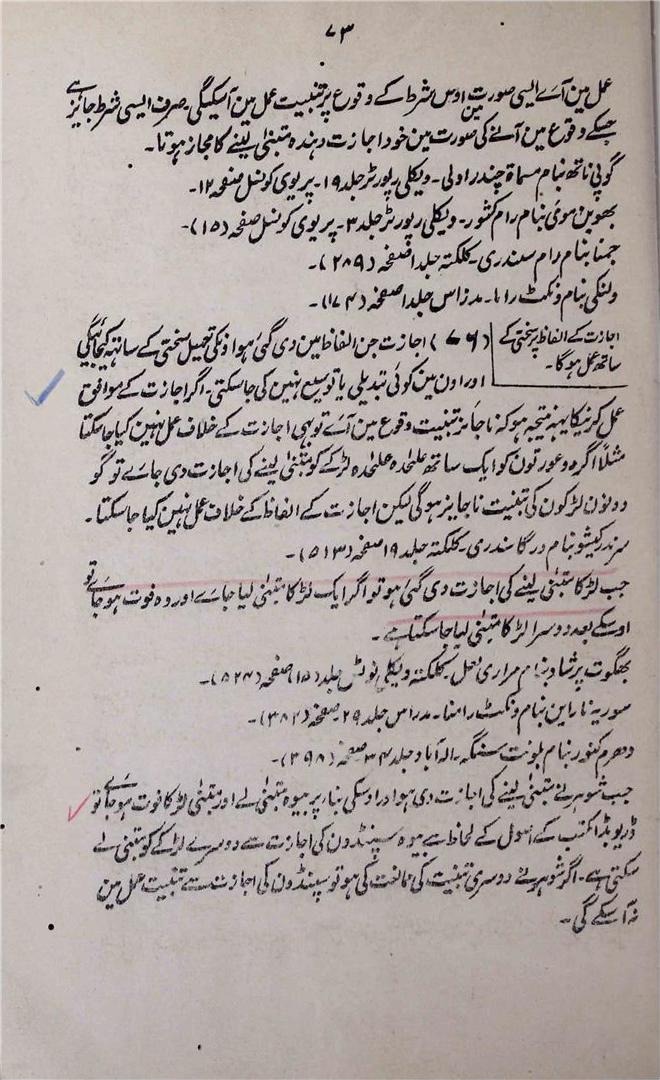 ۷۳
عمل مین آے ایسی صورت مین اوس شرط کے وقوع پر تبنیت عمل مین آسکیگی۔ صرف ایسی شرط جایز ہے
جسکے وقوع مین آنے کی صورت مین خود اجازت دہندہ متبنٰی لینے کا مجاز ہوتا۔
گوپی ناتھ بنام مسماۃ چندراولی۔ ویکلی رپورٹر جلد ۱۹۔ پریوی کونسل صفحہ ۱۲۔
بھوبن موئی بنام رام کشور۔ ویکلی رپورٹر جلد ۳۔ پریوی کونسل صفحہ (۱۵)۔
جمنا بنام رام سندری۔ کلکتہ جلد ا صفحہ (۲۸۹)۔
ولنکی بنام ونکٹ راما۔ مدراس جلد ا صفحہ (۱۷۴)۔
اجازت کے الفاظ پر سختی کے
ساتھ عمل ہوگا۔
(۷۶) اجازت جن الفاظ مین دی گئی ہو اونکی تعمیل سختی کے ساتھ کیجائیگی
اور اون مین کوئی تبدیلی یا توسیع نہین کی جاسکتی۔ اگر اجازت کے موافق
عمل کرنیکا یہہ نتیجہ ہو کہ ناجایز تبنیت وقوع مین آے تو بھی اجازت کے خلاف عمل نہین کیا جاسکتا
مثلاً اگر دو عورتون کو ایک ساتھ علٰحدہ علٰحدہ لڑکے کو متبنٰی لینے کی اجازت دی جاے تو گو
دونون لڑکون کی تبنیت ناجایز ہوگی لیکن اجازت کے الفاظ کے خلاف عمل نہین کیا جاسکتا۔
سرندر کیشو بنام درگا سندری۔ کلکتہ جلد ۱۹ صفحہ (۵۱۳)۔
جب لڑکا متبنٰی لینے کی اجازت دی گئی ہو تو اگر ایک لڑکا متبنٰی لیا جاے اور وہ فوت ہو جاے تو
اوسکے بعد دوسرا لڑکا متبنٰی لیا جاسکتا ہے۔
بھگوت پرشاد بنام مراری لعل۔ کلکتہ ویکلی نوٹس جلد (۱۵) صفحہ (۵۲۴)۔
سوریہ ناراین بنام ونکٹ رامنا۔ مدراس جلد ۲۹ صفحہ (۳۸۲)۔
دھرم کنور بنام بلونت سنگہ۔ الہ آباد جلد ۳۴ صفحہ (۳۹۸)۔
جب شوہر نے متبنٰی لینے کی اجازت دی ہو اور اوسکی بنا پر بیوہ متبنٰی لے اور متبنٰی لڑکا فوت ہو جاے تو
ڈریویڈا مکتب کے اصول کے لحاظ سے بیوہ سپنڈون کی اجازت سے دوسرے لڑکے کو متبنٰی لے
سکتی ہے۔ اگر شوہر نے دوسری تبنیت کی ممانعت کی ہو تو سپنڈون کی اجازت سے تبنیت عمل مین
نہ آسکے گی۔